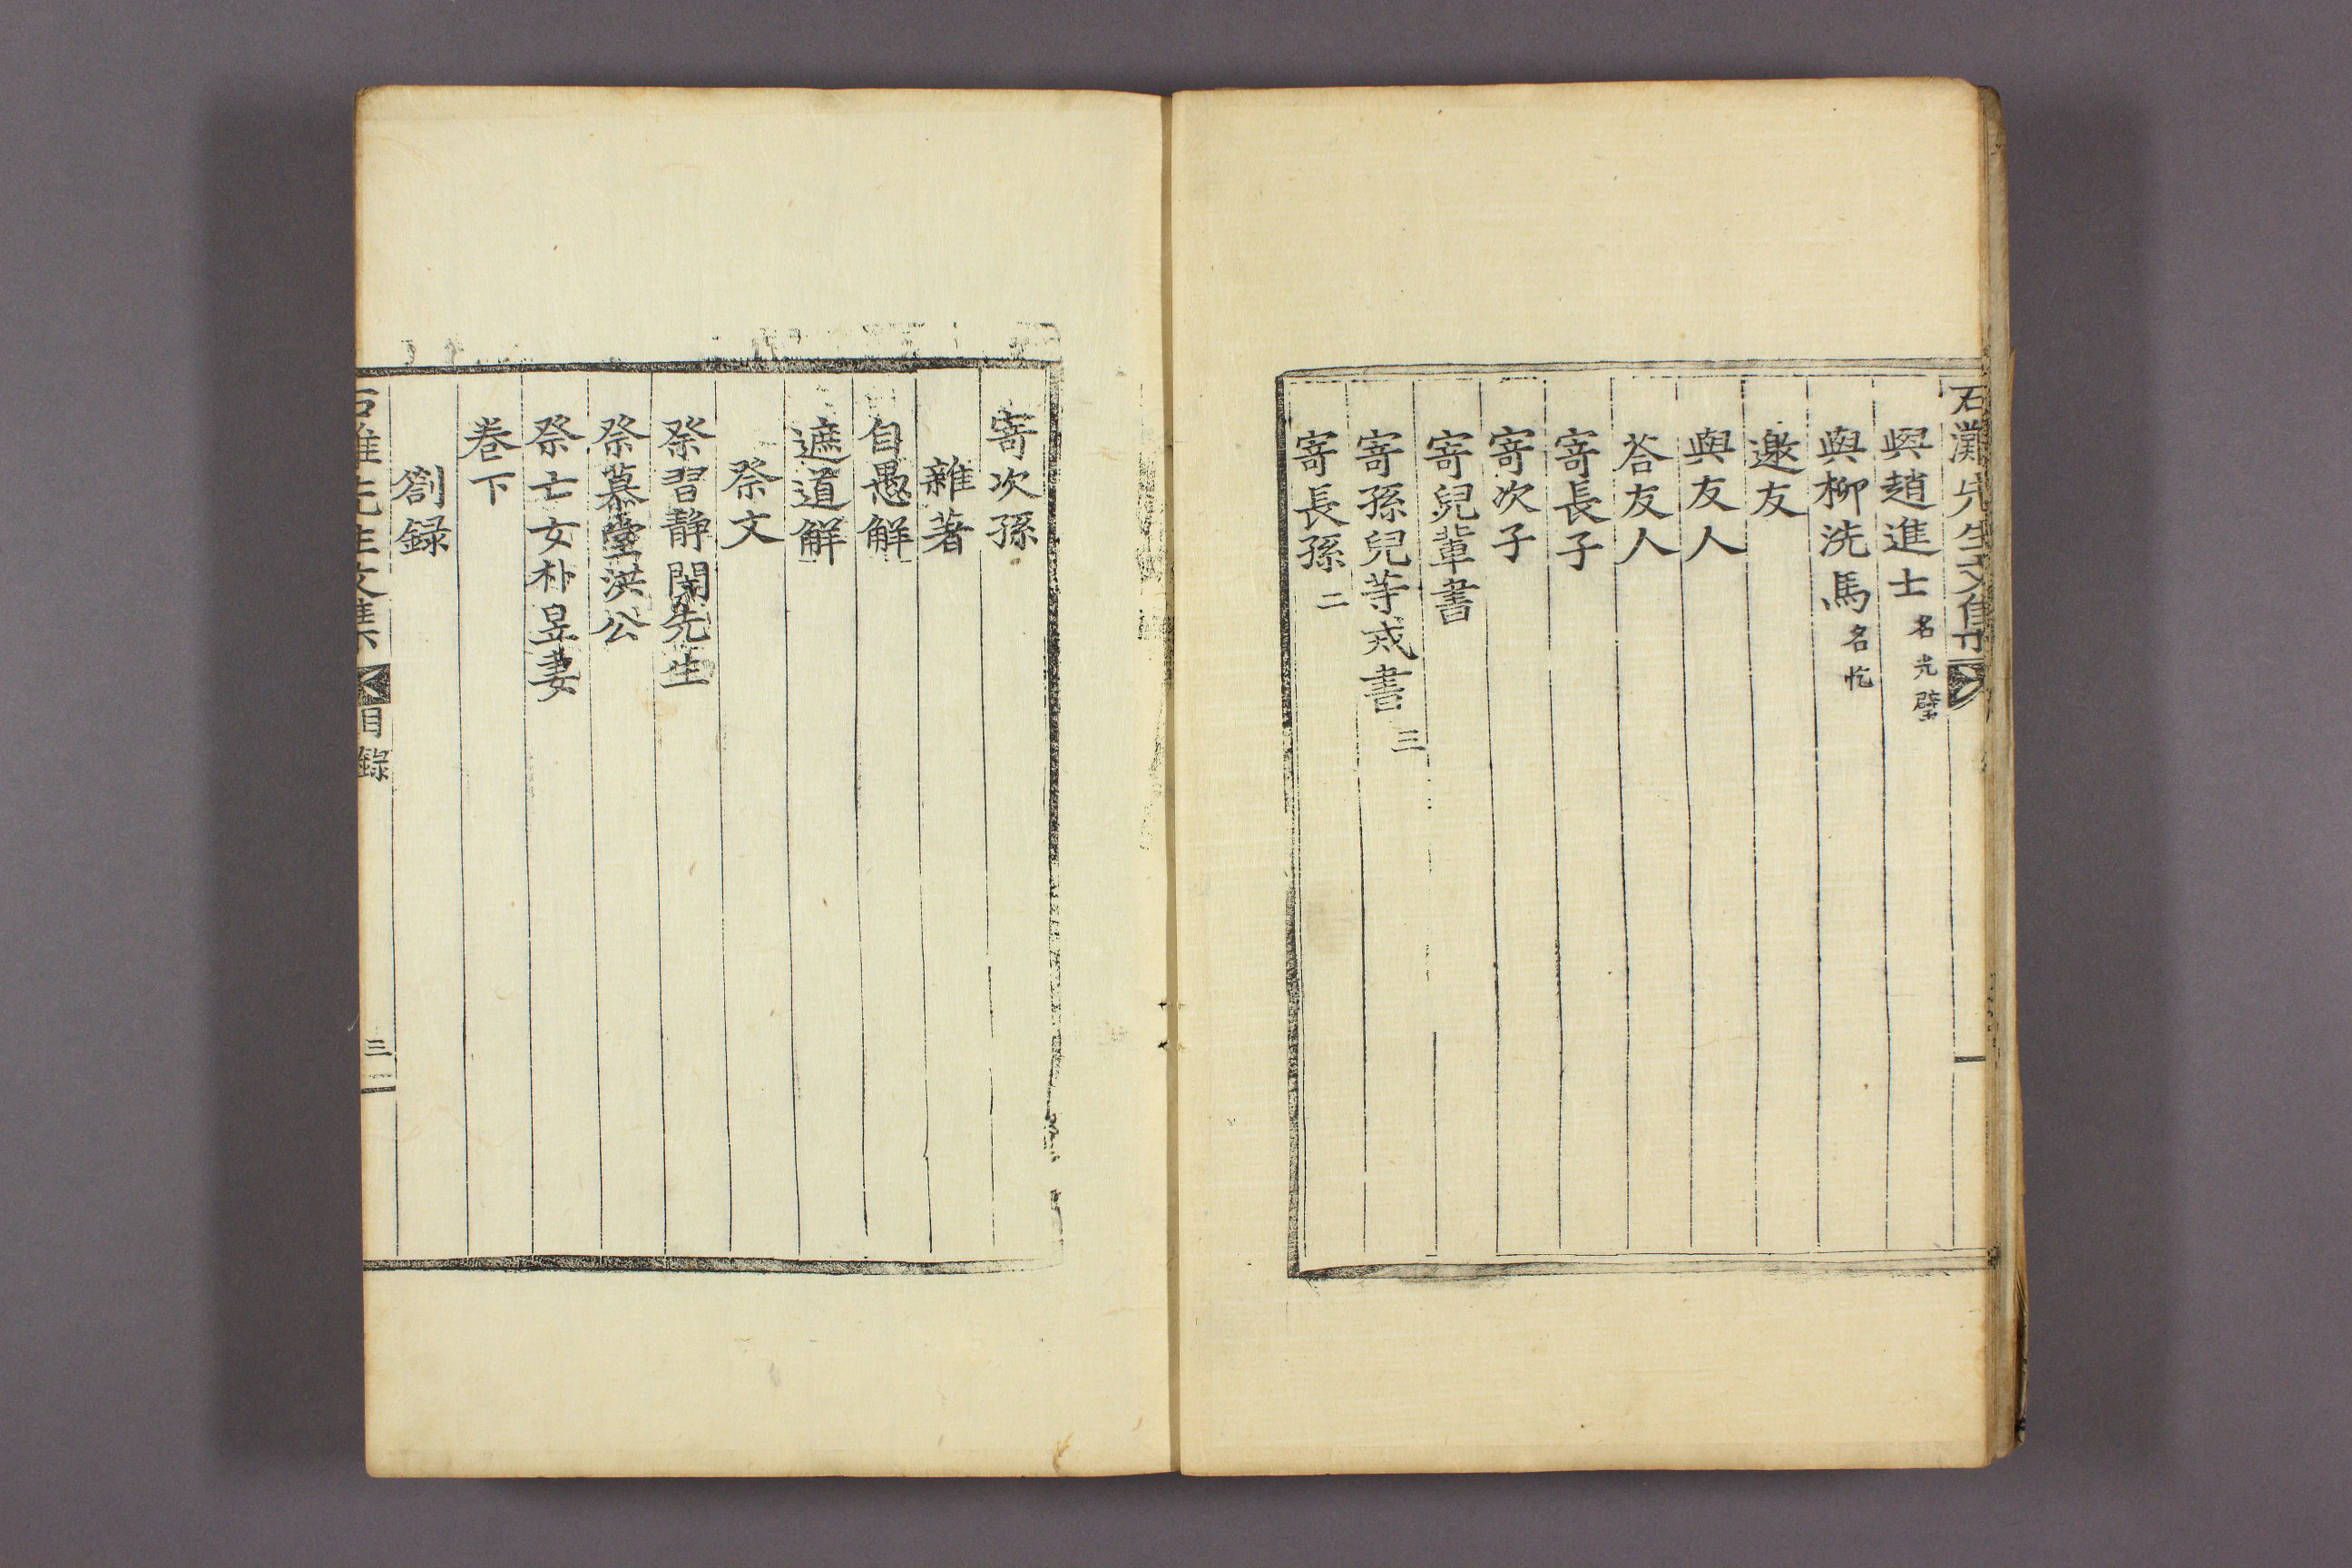 石灘先生文集
與趙進士 名光璧
與柳洗馬 名忔
邀友
與友人
答友人
寄長子
寄次子
寄兒輩書
寄孫兒等戒書 三
寄長孫 二
寄次孫
雜著
自愚解
遮道解
祭文
祭習靜閔先生
祭慕堂洪公
祭亡女朴昱妻
卷下
劄録
石灘先生文集 目録 三